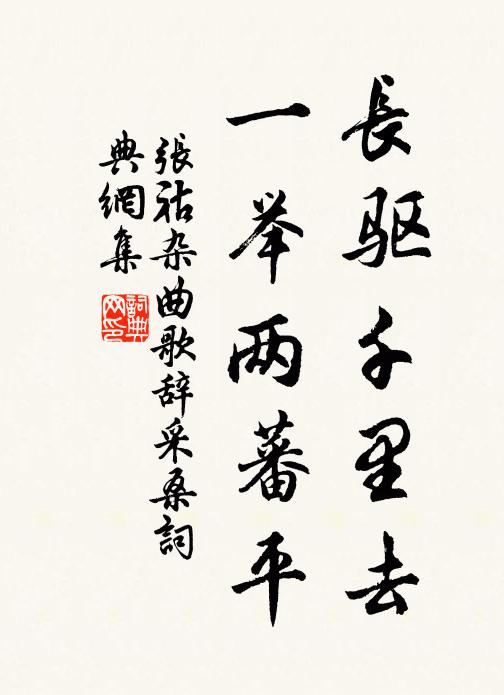 長驱千里去
一举两蕃平
張祜杂曲歌辞采桑詞
典網集
詞典
网印